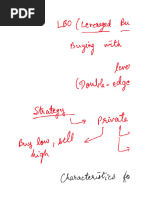 LBO (Leveraged Bu
Buying with
leve
(Double-edge
Strategy
Private
Buy low, sell
high
Characteristics fo